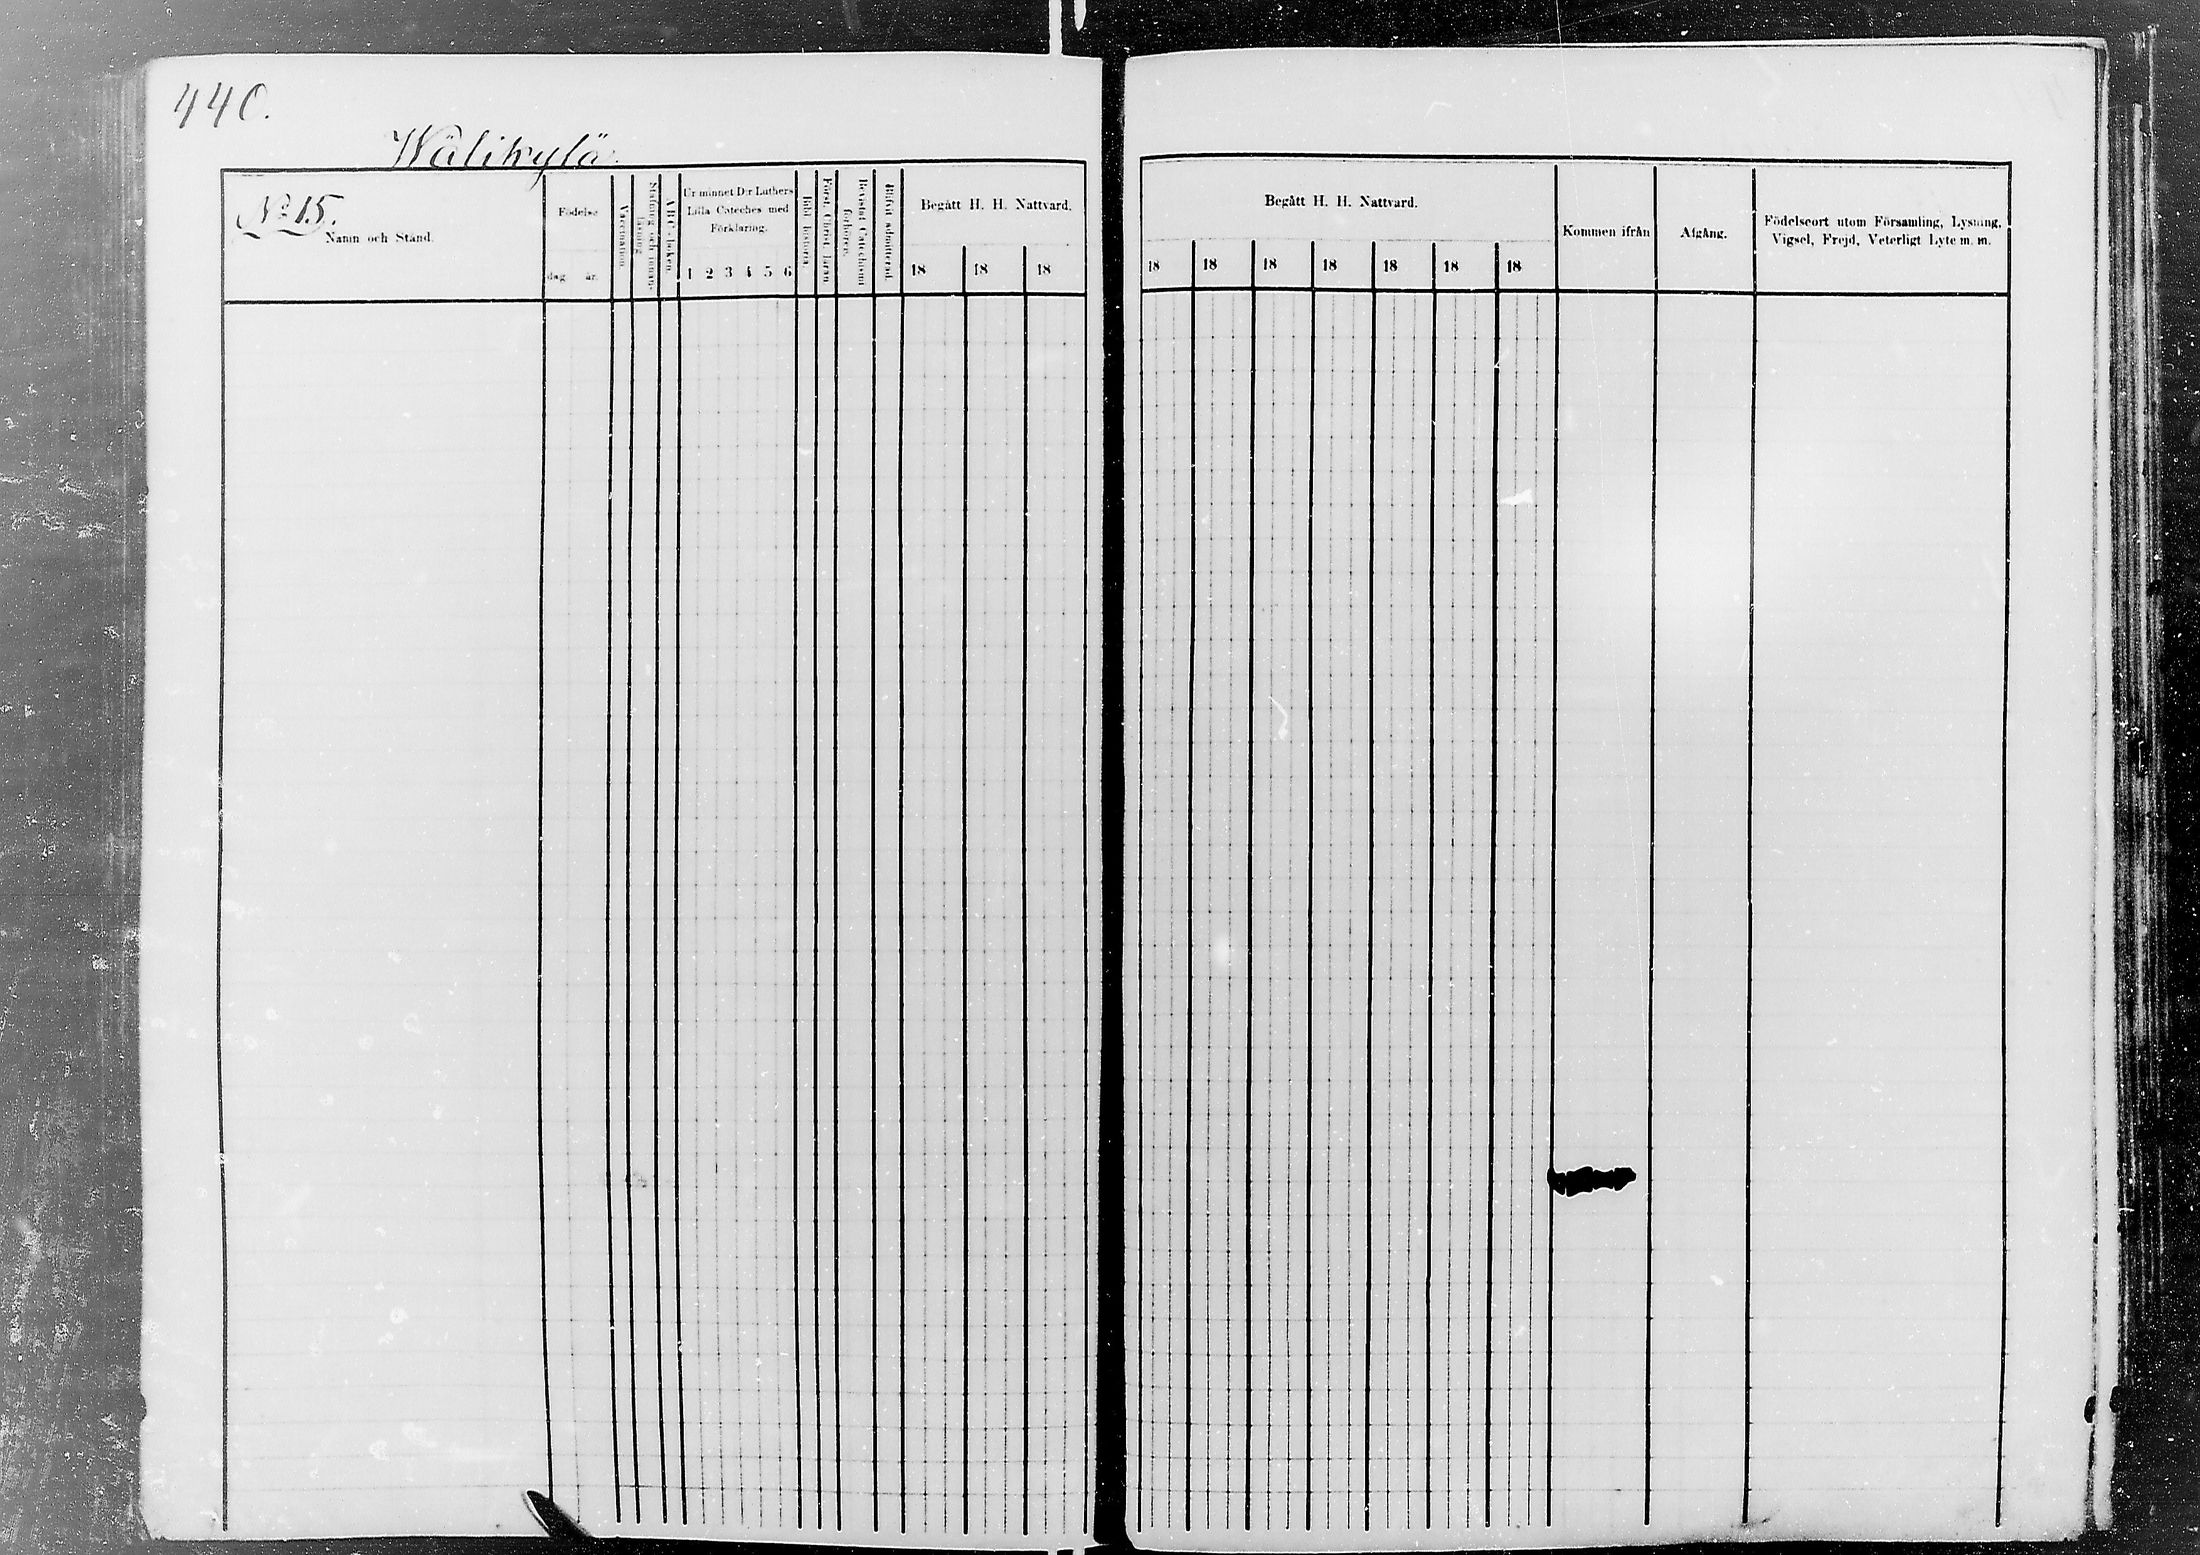 440.
Wälikylä.
N:o 15.
Namn och Stånd.
Födelse
dag år.
Vaccination.
Stafning och innan-
läsning.
ABC-boken.
Ur minnet D:r Luthers
Lilla Cateches med
Förklaring.
1 2 3 4 5 6
Bibl. historia.
Först. Christ. läran
Bevistat Catechismi
förhören.
Blifvit admitterad.
Begått H. H. Nattvard.
18 18 18
Begått H. H. Nattvard.
18 18 18 18 18 18 18
Kommen ifrån
Afgång.
Födelseort utom Församling, Lysning,
Vigsel, Frejd, Veterligt Lyte m. m.